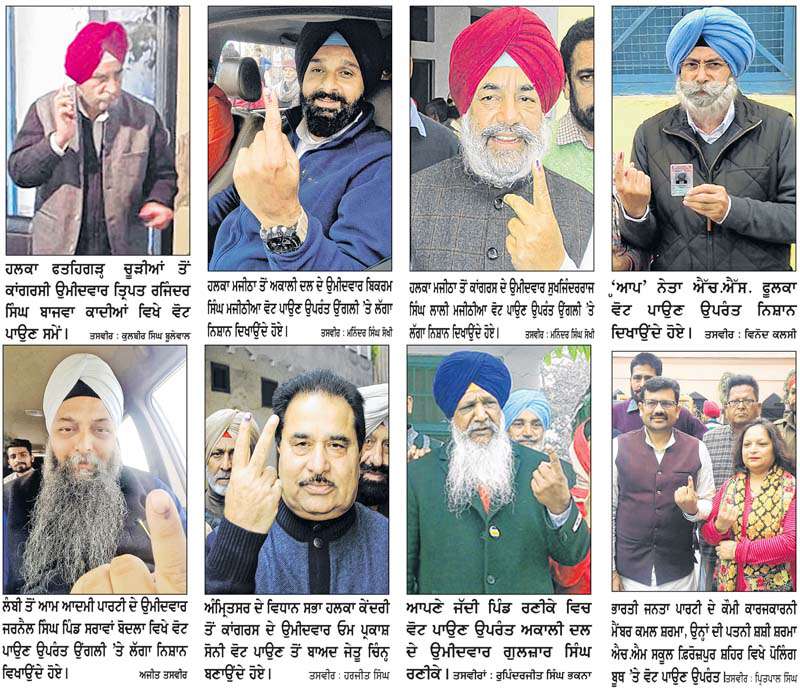 ਹਲਕਾ ਫਤਹਿਗੜ੍ਹ ਚੂੜੀਆਂ ਤੋਂ
ਕਾਂਗਰਸੀ ਉਮੀਦਵਾਰ ਤ੍ਰਿਪਤ ਰਜਿੰਦਰ
ਸਿੰਘ ਬਾਜਵਾ ਕਾਦੀਆਂ ਵਿਖੇ ਵੋਟ
ਪਾਉਣ ਸਮੇਂ। ਤਸਵੀਰ : ਕੁਲਬੀਰ ਸਿੰਘ ਬੂਲੇਵਾਲ
ਹਲਕਾ ਮਜੀਠਾ ਤੋਂ ਅਕਾਲੀ ਦਲ ਦੇ ਉਮੀਦਵਾਰ ਬਿਕਰਮ
ਸਿੰਘ ਮਜੀਠੀਆ ਵੋਟ ਪਾਉਣ ਉਪਰੰਤ ਉਂਗਲੀ 'ਤੇ ਲੱਗਾ
ਨਿਸ਼ਾਨ ਦਿਖਾਉਂਦੇ ਹੋਏ। ਤਸਵੀਰ : ਮਨਿੰਦਰ ਸਿੰਘ ਸੋਖੀ
ਹਲਕਾ ਮਜੀਠਾ ਤੋਂ ਕਾਂਗਰਸ ਦੇ ਉਮੀਦਵਾਰ ਸੁਖਜਿੰਦਰਰਾਜ
ਸਿੰਘ ਲਾਲੀ ਮਜੀਠੀਆ ਵੋਟ ਪਾਉਣ ਉਪਰੰਤ ਉਂਗਲੀ 'ਤੇ
ਲੱਗਾ ਨਿਸ਼ਾਨ ਦਿਖਾਉਂਦੇ ਹੋਏ। ਤਸਵੀਰ : ਮਨਿੰਦਰ ਸਿੰਘ ਸੋਖੀ
'ਆਪ' ਨੇਤਾ ਐੱਚ.ਐੱਸ. ਫੂਲਕਾ
ਵੋਟ ਪਾਉਣ ਉਪਰੰਤ ਨਿਸ਼ਾਨ
ਦਿਖਾਉਂਦੇ ਹੋਏ। ਤਸਵੀਰ : ਵਿਨੋਦ ਕਲਸੀ
ਲੰਬੀ ਤੋਂ ਆਮ ਆਦਮੀ ਪਾਰਟੀ ਦੇ ਉਮੀਦਵਾਰ
ਜਰਨੈਲ ਸਿੰਘ ਪਿੰਡ ਸਰਾਵਾਂ ਬੋਦਲਾ ਵਿਖੇ ਵੋਟ
ਪਾਉਣ ਉਪਰੰਤ ਉਂਗਲੀ 'ਤੇ ਲੱਗਾ ਨਿਸ਼ਾਨ
ਵਿਖਾਉਂਦੇ ਹੋਏ। ਅਜੀਤ ਤਸਵੀਰ
ਅੰਮ੍ਰਿਤਸਰ ਦੇ ਵਿਧਾਨ ਸਭਾ ਹਲਕਾ ਕੇਂਦਰੀ
ਤੋਂ ਕਾਂਗਰਸ ਦੇ ਉਮੀਦਵਾਰ ਓਮ ਪ੍ਰਕਾਸ਼
ਸੋਨੀ ਵੋਟ ਪਾਉਣ ਤੋਂ ਬਾਅਦ ਜੇਤੂ ਚਿੰਨ੍ਹ
ਬਣਾਉਂਦੇ ਹੋਏ। ਤਸਵੀਰ : ਹਰਜੀਤ ਸਿੰਘ
ਆਪਣੇ ਜੱਦੀ ਪਿੰਡ ਰਣੀਕੇ ਵਿਚ
ਵੋਟ ਪਾਉਣ ਉਪਰੰਤ ਅਕਾਲੀ ਦਲ
ਦੇ ਉਮੀਦਵਾਰ ਗੁਲਜ਼ਾਰ ਸਿੰਘ
ਰਣੀਕੇ। ਤਸਵੀਰਾਂ : ਰੁਪਿੰਦਰਜੀਤ ਸਿੰਘ ਭਕਨਾ
ਭਾਰਤੀ ਜਨਤਾ ਪਾਰਟੀ ਦੇ ਕੌਮੀ ਕਾਰਜਕਾਰਨੀ
ਮੈਂਬਰ ਕਮਲ ਸ਼ਰਮਾ, ਉਨ੍ਹਾਂ ਦੀ ਪਤਨੀ ਸ਼ਸ਼ੀ ਸ਼ਰਮਾ
ਐਚ.ਐਮ ਸਕੂਲ ਫ਼ਿਰੋਜ਼ਪੁਰ ਸ਼ਹਿਰ ਵਿਖੇ ਪੋਲਿੰਗ
ਬੂਥ 'ਤੇ ਵੋਟ ਪਾਉਣ ਉਪਰੰਤ। ਤਸਵੀਰ : ਪ੍ਰਿਤਪਾਲ ਸਿੰਘ